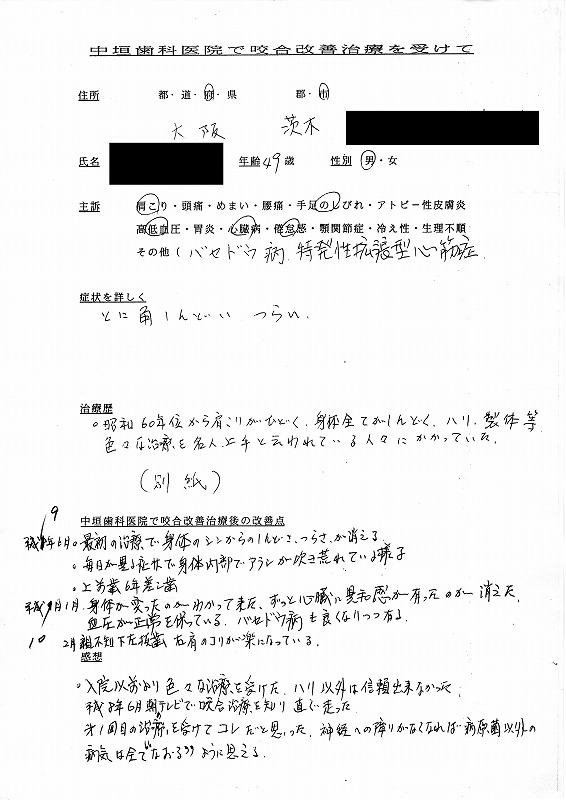 中垣歯科医院で咬合改善治療を受けて
住所 都・道・府・県 郡・市
大阪 茨木
氏名 年齢 49歳 性別 男・女
主訴 肩こり・頭痛・めまい・腰痛・手足のしびれ・アトピー性皮膚炎
高低血圧・胃炎・心臓病・倦怠感・顎関節症・冷え性・生理不順
その他( バセドウ病、特発性拡張型心筋症
症状を詳しく
とに角しんどい つらい、
治療歴
○昭和60年位から肩こりがひどく、身体全てがしんどく、ハリ、製体等
色々な治療を名人上手と云われている人々にかかっていた。
(別紙)
9
中垣歯科医院で咬合改善治療後の改善点
平成 年6月○最初の治療で身体のシンからのしんどさ、つらさ、が消える
○毎日が異る症状で身体内部でアラシが吹き荒れている様子
○上 歯6年
平成9年1月、身体が変ったのがわかって来た、ずっと心臓に異和感が有ったのが消えた、
血圧が正常を保っている。バセドウ病も良くなりつつある。
10 2月親不知下左抜歯 右肩のコリが楽になっている。
感想
○入院以前より色々な治療を受けた、ハリ以外は信頼出来なかった。
平成8年6月朝テレビで咬合治療を知り直ぐ走った
第1回目の治療を受けてコレだと思った、神経への障りがなくなれば病原菌以外の
病気は全て"なおる"ように思える。